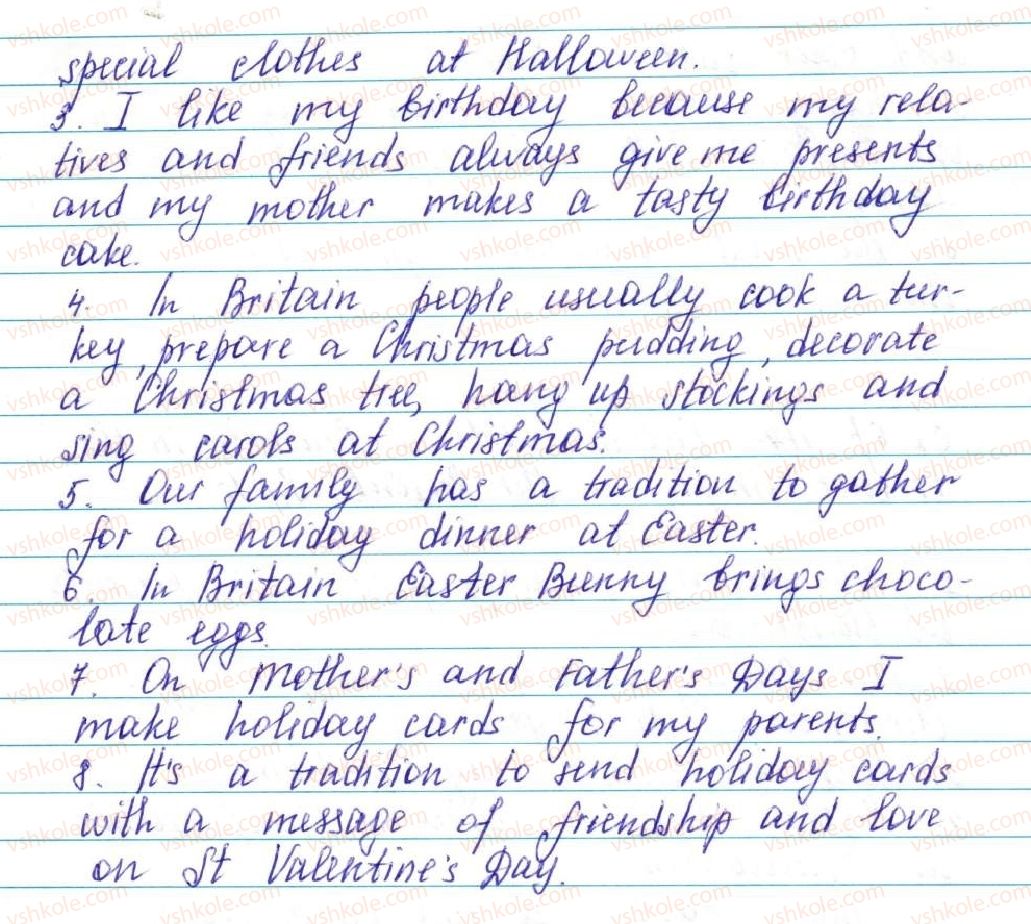 special clothes at Halloween.
3. I like my birthday because my rela-
tives and friends always give me presents
and my mother makes a tasty birthday
cake.
4. In Britain people usually cook a tur-
key, prepare a Christmas pudding, decorate
a Christmas tree, hang up stockings and
sing carols at Christmas.
5. Our family has a tradition to gather
for a holiday dinner at Easter.
6. In Britain Easter Bunny brings choco-
late eggs.
7. On Mother's and Father's Days I
make holiday cards for my parents.
8. It's a tradition to send holiday cards
with a message of friendship and love
on St Valentine's Day.